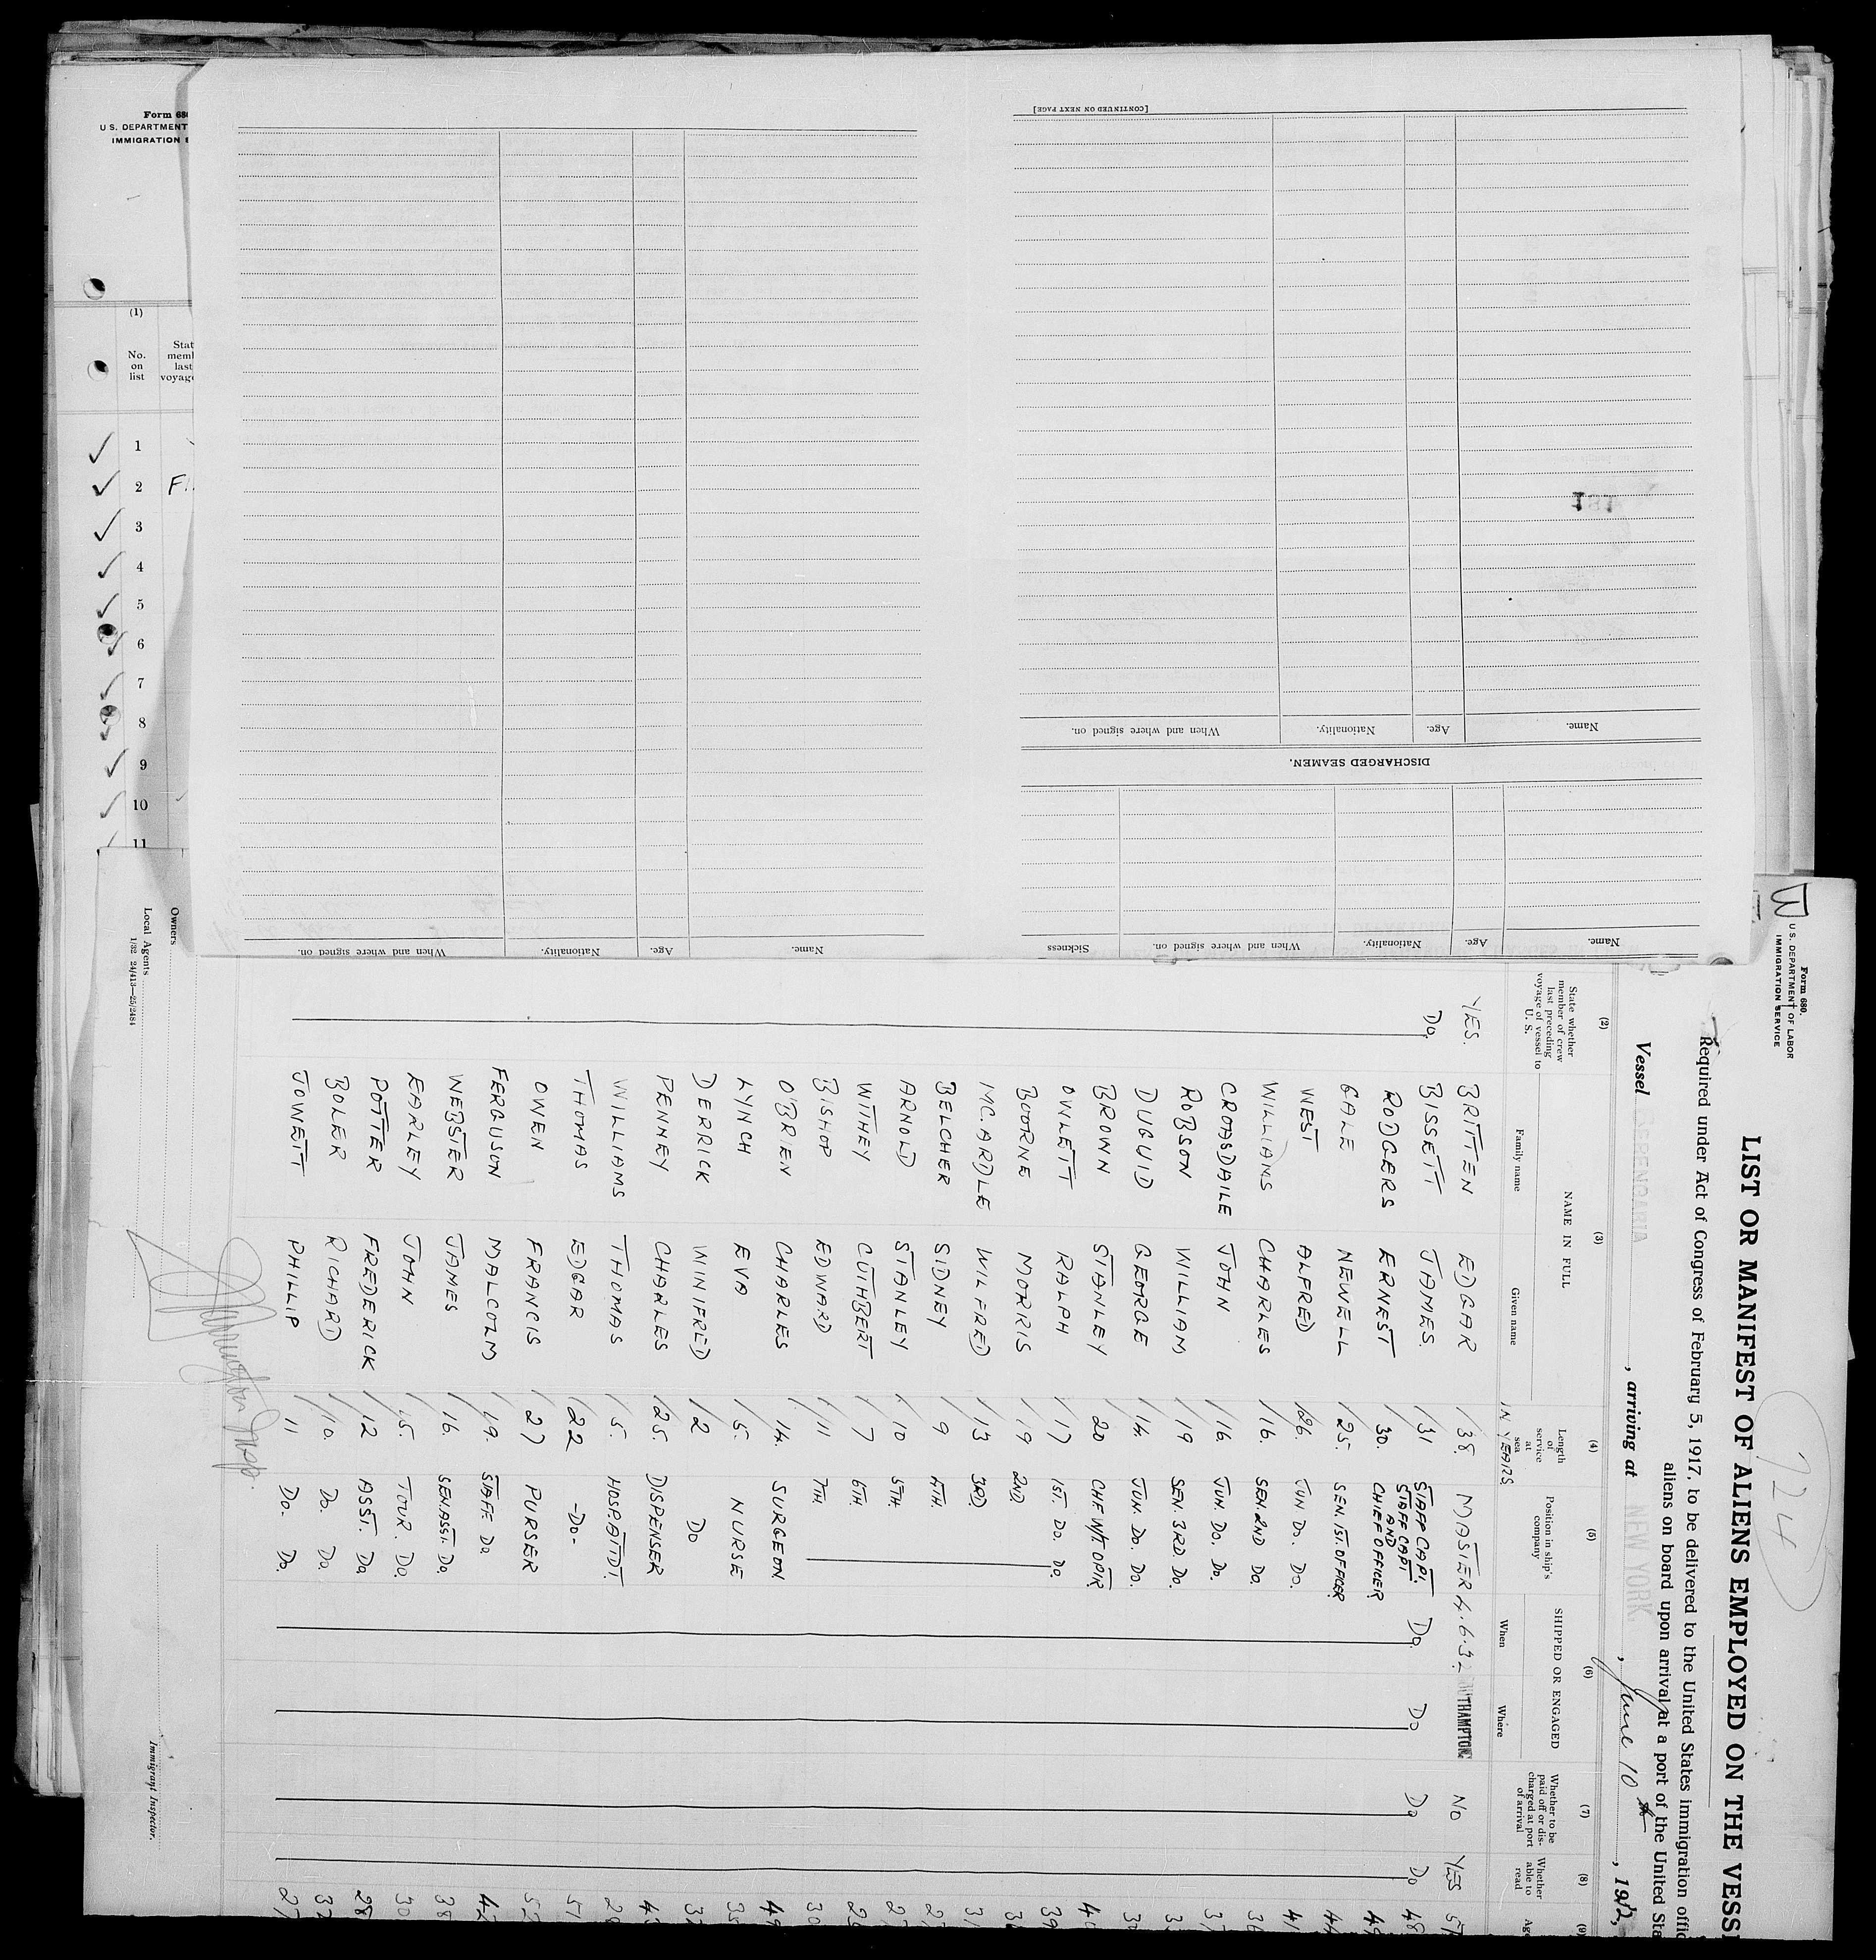 Form 68
U. S. DEPARTMENT
IMMIGRATION
(1)
No.
on
list
Stat
memb
last
voyage
1
2
3
4
5
6
7
8
9
10
11
Owners
Local Agents
1/32 24/413—25/2484
[CONTINUED ON NEXT PAGE]
Name.
Age.
Nationality.
When and where signed on.
DISCHARGED SEAMEN.
Name.
Age.
Nationality.
When and where signed on.
Sickness
Name.
Age.
Nationality.
When and where signed on.
Form 680.
U. S. DEPARTMENT OF LABOR
IMMIGRATION SERVICE
724
LIST OR MANIFEST OF ALIENS EMPLOYED ON THE VESS
Required under Act of Congress of February 5, 1917, to be delivered to the United States immigration offic
aliens on board upon arrival at a port of the United Sta
Vessel BERENGARIA, arriving at NEW YORK, June 10, 1932,
(2) (3) (4) (5) (6) (7) (8) (9)
State whether member of crew last preceding voyage of vessel to U. S.
NAME IN FULL
Family name
Given name
Length of service at sea
IN YEARS
Position in ship's company
SHIPPED OR ENGAGED
When
Where
Whether to be paid off or discharged at port of arrival
Whether able to read
Age
YES. BRITTEN EDGAR 38 MASTER 4.6.32 THAMPTON. NO YES
Do. BISSETT JAMES. 31 STAFF CAPT. Do. Do Do Do 48
RODGERS ERNEST 30. STAFF CAPT AND CHIEF OFFICER
GALE NEWELL 25. SEN. 1ST. OFFICER
WEST ALFRED 26. JUN DO. DO. 41
WILLIAMS CHARLES 16. SEN. 2ND DO. 36
CROASDAILE JOHN 16. JUN. DO. DO.
ROBSON WILLIAM 19 SEN. 3RD. DO.
DUGUID GEORGE 14. JUN. DO. DO.
BROWN STANLEY 20 CHF W/T OPTR
OWLETT RALPH 17 1ST. DO. DO. 39
BOORNE MORRIS 19 2ND
MC. ARDLE WILFRED 13 3RD 31
BELCHER SIDNEY 9 4TH.
ARNOLD STANLEY 10 5TH.
WITHEY CUTHBERT 7 6TH.
BISHOP EDWARD 11 7TH. 30
O'BRIEN CHARLES 14. SURGEON
LYNCH EVA 5. NURSE 35
DERRICK WINIFRED 2 DO
PENNEY CHARLES 25. DISPENSER
WILLIAMS THOMAS 5. HOSP. ATTDT.
THOMAS EDGAR 22 -DO- 51
OWEN FRANCIS 27 PURSER 52
FERGUSON MALCOLM 19. STAFF DO 42
WEBSTER JAMES 16. SEN. ASST. DO. 38
EARLEY JOHN 5. TOUR. DO. 30
POTTER FREDERICK 12 ASST. DO 28
BOLER RICHARD 10. DO. DO. 32
JOWETT PHILLIP 11 DO. DO. 27
Immigrant Inspector.